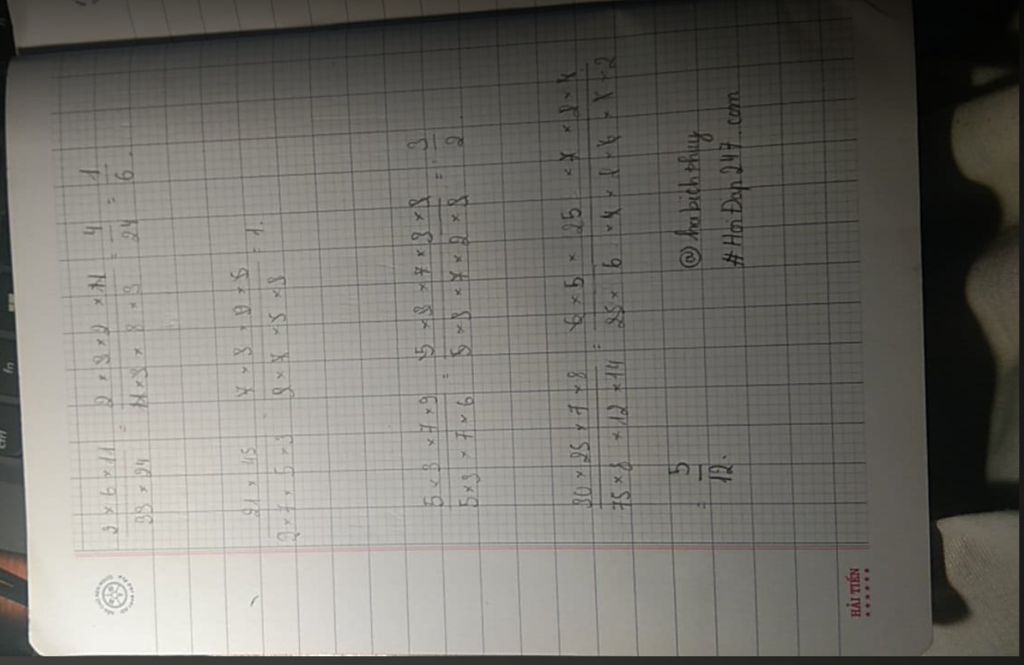 2 × 6 × 11 / 33 × 24 = 2 × 3 × 2 × 11 / 11 × 3 × 8 × 3 = 4 / 24 = 1 / 6.
21 × 45 / 9 × 7 × 5 × 3 = 7 × 3 × 9 × 5 / 9 × 7 × 5 × 3 = 1.
5 × 3 × 7 × 9 / 5 × 3 × 7 × 6 = 5 × 3 × 7 × 3 × 3 / 5 × 3 × 7 × 2 × 3 = 3 / 2.
30 × 25 × 7 × 8 / 75 × 8 × 12 × 14 = 6 × 5 × 25 × 7 × 2 × 4 / 25 × 6 × 4 × 2 × 6 × 7 × 2
= 5 / 12.
@habichthuy
#HoiDap247.com
HẢI TIẾN